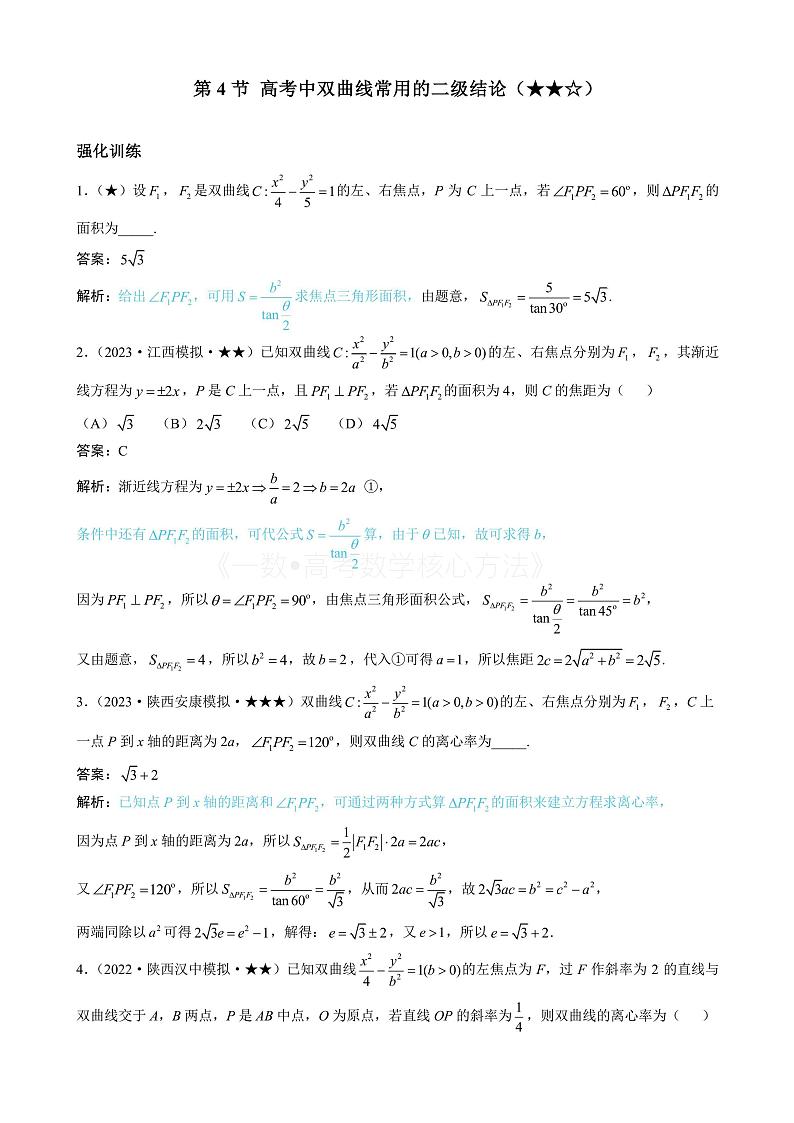 第 4 节 高考中双曲线常用的二级结论（★★☆）
强化训练
1.（★）设 F₁，F₂ 是双曲线 C: x²/4 − y²/5 = 1 的左、右焦点，P 为 C 上一点，若 ∠F₁PF₂ = 60°，则 ΔPF₁F₂ 的
面积为_____.
答案：5√3
解析：给出 ∠F₁PF₂，可用 S = b²/tan(θ/2) 求焦点三角形面积，由题意，S_ΔPF₁F₂ = 5/tan30° = 5√3.
2.（2023·江西模拟·★★）已知双曲线 C: x²/a² − y²/b² = 1(a > 0, b > 0) 的左、右焦点分别为 F₁，F₂，其渐近
线方程为 y = ±2x，P 是 C 上一点，且 PF₁ ⊥ PF₂，若 ΔPF₁F₂ 的面积为 4，则 C 的焦距为（ ）
（A）√3 （B）2√3 （C）2√5 （D）4√5
答案：C
解析：渐近线方程为 y = ±2x ⇒ b/a = 2 ⇒ b = 2a ①，
条件中还有 ΔPF₁F₂ 的面积，可代公式 S = b²/tan(θ/2) 算，由于 θ 已知，故可求得 b，
《一数•高考数学核心方法》
因为 PF₁ ⊥ PF₂，所以 θ = ∠F₁PF₂ = 90°，由焦点三角形面积公式，S_ΔPF₁F₂ = b²/tan(θ/2) = b²/tan45° = b²，
又由题意，S_ΔPF₁F₂ = 4，所以 b² = 4，故 b = 2，代入①可得 a = 1，所以焦距 2c = 2√(a² + b²) = 2√5.
3.（2023·陕西安康模拟·★★★）双曲线 C: x²/a² − y²/b² = 1(a > 0, b > 0) 的左、右焦点分别为 F₁，F₂，C 上
一点 P 到 x 轴的距离为 2a，∠F₁PF₂ = 120°，则双曲线 C 的离心率为_____.
答案：√3 + 2
解析：已知点 P 到 x 轴的距离和 ∠F₁PF₂，可通过两种方式算 ΔPF₁F₂ 的面积来建立方程求离心率，
因为点 P 到 x 轴的距离为 2a，所以 S_ΔPF₁F₂ = 1/2|F₁F₂|·2a = 2ac，
又 ∠F₁PF₂ = 120°，所以 S_ΔPF₁F₂ = b²/tan60° = b²/√3，从而 2ac = b²/√3，故 2√3ac = b² = c² − a²，
两端同除以 a² 可得 2√3e = e² − 1，解得：e = √3 ± 2，又 e > 1，所以 e = √3 + 2.
4.（2022·陕西汉中模拟·★★）已知双曲线 x²/4 − y²/b² = 1(b > 0) 的左焦点为 F，过 F 作斜率为 2 的直线与
双曲线交于 A，B 两点，P 是 AB 中点，O 为原点，若直线 OP 的斜率为 1/4，则双曲线的离心率为（ ）